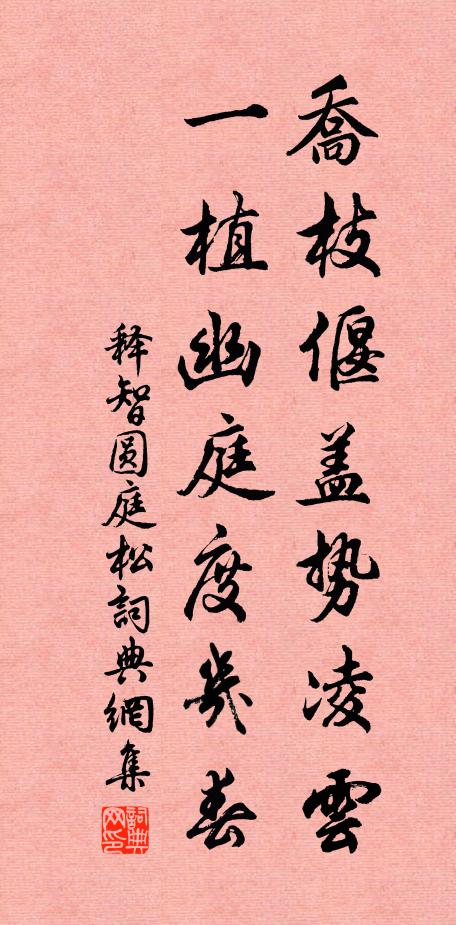 喬枝偃盖势凌雲
一植幽庭度幾春
释智圆庭松詞典網集
詞典网印